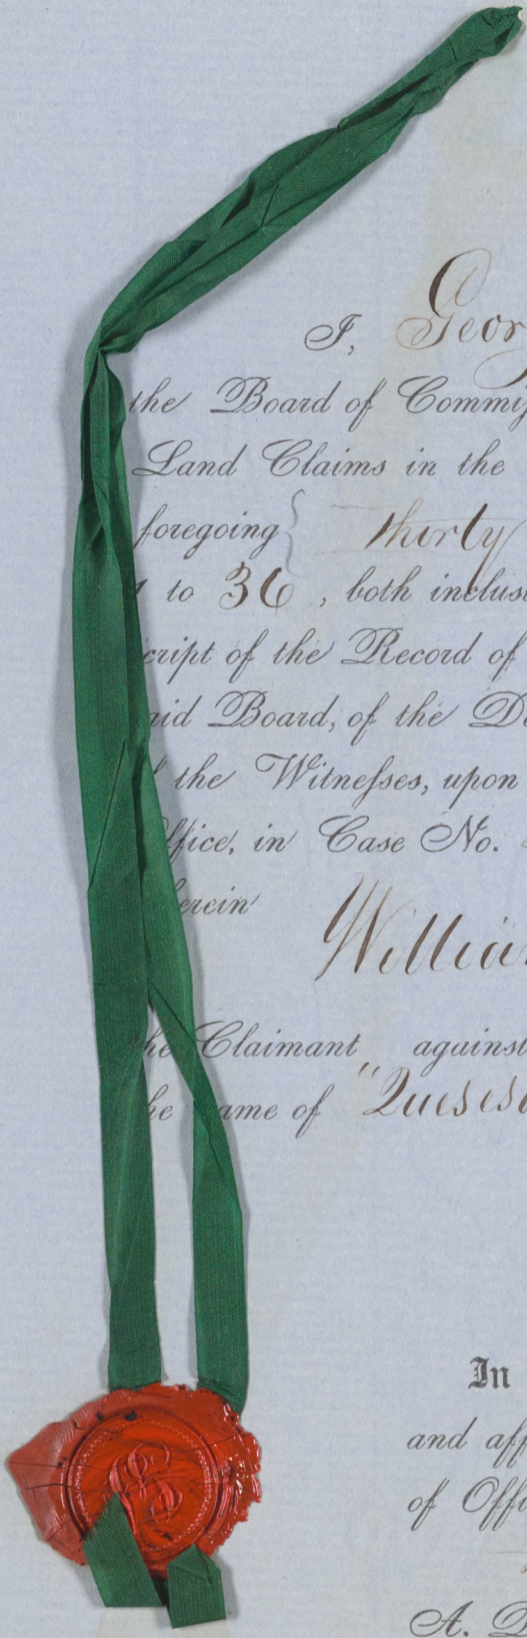 I, Geor
the Board of Commiſ
Land Claims in the
foregoing { Thirty
1 to 36, both inclus
cript of the Record of
aid Board, of the D
the Witneſses, upon
ffice, in Case No.
erein
William
he Claimant against
he ame of "Queses
In
and aff
of Offi
A. D